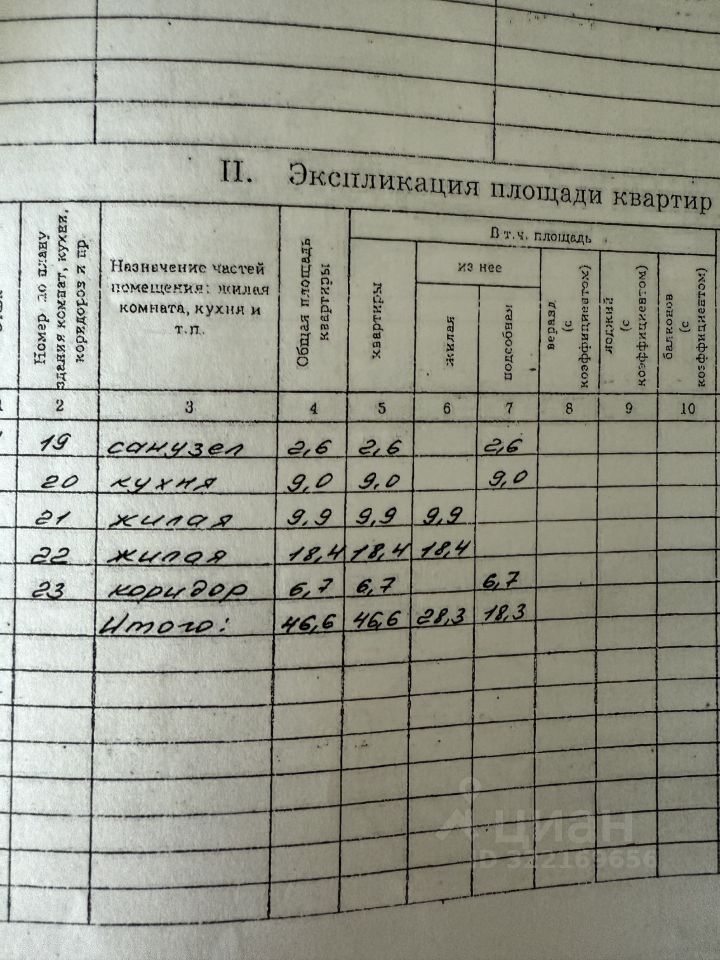 II. Экспликация площади квартир
Номер по плану
здания комнат, кухни,
коридоров и пр.
Назначение частей
помещения: жилая
комната, кухня и
т.п.
Общая площадь
квартиры
В т.ч. площадь
квартиры
из нее
жилая
подсобная
веранд
(с
коэффициентом)
лоджий
(с
коэффициентом)
балконов
(с
коэффициентом)
2 3 4 5 6 7 8 9 10
19 санузел 2,6 2,6 2,6
20 кухня 9,0 9,0 9,0
21 жилая 9,9 9,9 9,9
22 жилая 18,4 18,4 18,4
23 коридор 6,7 6,7 6,7
Итого: 46,6 46,6 28,3 18,3
циан